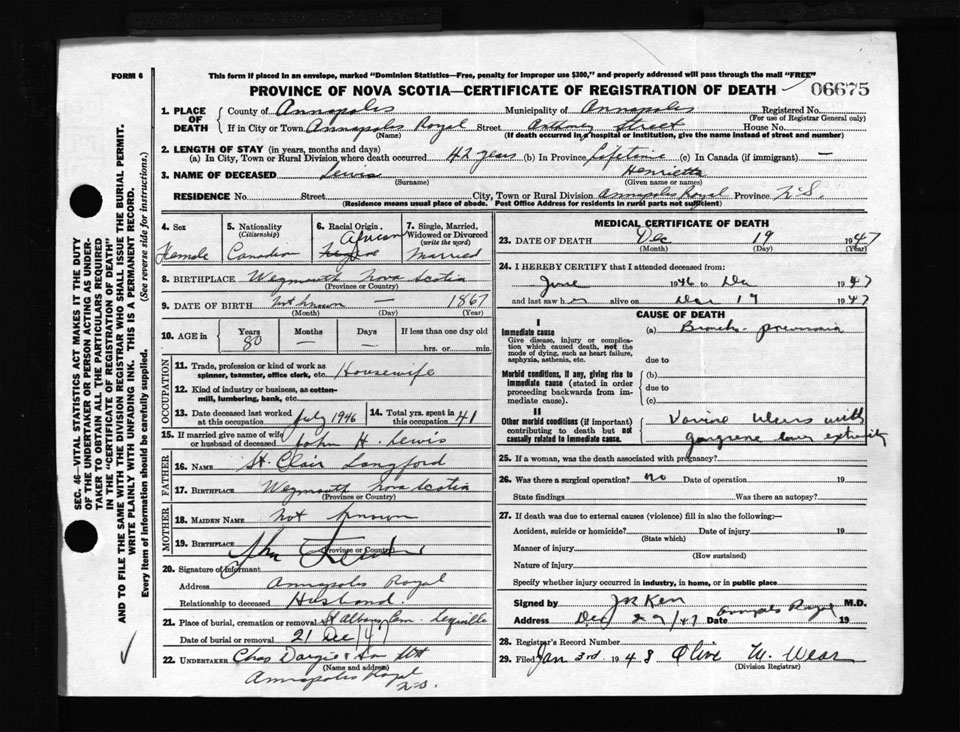 FORM 6
This form if placed in an envelope, marked "Dominion Statistics—Free, penalty for improper use $300," and properly addressed will pass through the mail "FREE"
PROVINCE OF NOVA SCOTIA—CERTIFICATE OF REGISTRATION OF DEATH 06675
1. PLACE OF DEATH
County of Annapolis Municipality of Annapolis Registered No.
(For use of Registrar General only)
If in City or Town Annapolis Royal Street Street House No.
(Name) (If death occurred in a hospital or institution, give the name instead of street and number)
2. LENGTH OF STAY (in years, months and days)
(a) In City, Town or Rural Division where death occurred 42 years (b) In Province Lifetime (c) In Canada (if immigrant) —
3. NAME OF DECEASED Lewis Henrietta
(Surname) (Given name or names)
RESIDENCE No. Street City, Town or Rural Division Annapolis Royal Province N.S.
(Residence means usual place of abode. Post Office Address for residents in rural parts not sufficient)
4. Sex
Female
5. Nationality
(Citizenship)
Canadian
6. Racial Origin
African
7. Single, Married, Widowed or Divorced
(write the word)
Married
8. BIRTHPLACE Weymouth Nova Scotia
(Province or Country)
9. DATE OF BIRTH Not known — 1867
(Month) (Day) (Year)
10. AGE in Years Months Days If less than one day old
80 — — hrs. or min.
OCCUPATION
11. Trade, profession or kind of work as spinner, teamster, office clerk, etc. Housewife
12. Kind of industry or business, as cotton-mill, lumbering, bank, etc.
13. Date deceased last worked at this occupation July 1946
14. Total yrs. spent in this occupation 41
15. If married give name of wife or husband of deceased John H. Lewis
FATHER
16. NAME St. Clair Langford
17. BIRTHPLACE Weymouth Nova Scotia
(Province or Country)
MOTHER
18. MAIDEN NAME Not known
19. BIRTHPLACE
(Province or Country)
20. Signature of informant John Lewis
Address Annapolis Royal
Relationship to deceased Husband
21. Place of burial, cremation or removal St Albans Cem. Lequille
Date of burial or removal 21 Dec/47
22. UNDERTAKER Chas Dargie & Son
(Name and address)
Annapolis Royal
N.S.
MEDICAL CERTIFICATE OF DEATH
23. DATE OF DEATH Dec 19 1947
(Month) (Day) (Year)
24. I HEREBY CERTIFY that I attended deceased from:
June 1946 to Dec 1947
and last saw her alive on Dec 19 1947
CAUSE OF DEATH
I
Immediate cause
Give disease, injury or complication which caused death, not the mode of dying, such as heart failure, asphyxia, asthenia, etc.
(a) Broncho-pneumonia
due to
Morbid conditions, if any, giving rise to immediate cause (stated in order proceeding backwards from immediate cause).
(b)
due to
(c)
II
Other morbid conditions (if important) contributing to death but not causally related to immediate cause.
Ulcers with
gangrene lower extremity
25. If a woman, was the death associated with pregnancy?
26. Was there a surgical operation? No Date of operation 19
State findings Was there an autopsy?
27. If death was due to external causes (violence) fill in also the following:—
Accident, suicide or homicide? Date of injury 19
(State which)
Manner of injury
(How sustained)
Nature of injury
Specify whether injury occurred in industry, in home, or in public place
Signed by Kerr M.D.
Address Annapolis Royal Date Dec 29/47 19
28. Registrar's Record Number
29. Filed Jan 3rd 1948 Olive W. Wear
(Division Registrar)
SEC. 46—VITAL STATISTICS ACT MAKES IT THE DUTY
OF THE UNDERTAKER OR PERSON ACTING AS UNDER-
TAKER TO OBTAIN ALL THE PARTICULARS REQUIRED
IN THE "CERTIFICATE OF REGISTRATION OF DEATH"
AND TO FILE THE SAME WITH THE DIVISION REGISTRAR WHO SHALL ISSUE THE BURIAL PERMIT.
WRITE PLAINLY WITH UNFADING INK. THIS IS A PERMANENT RECORD.
Every item of information should be carefully supplied. (See reverse side for instructions.)